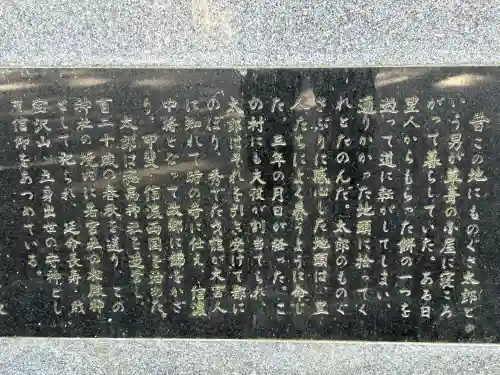 昔この地にものぐさ太郎との
いう男が草葺の小屋に寝ころ
がって暮らしていた。ある日
里人からもらった餅の一つを
誤って道に転がしてしまい、
通りかかった地頭に拾ってく
れとたのんだ。太郎のものぐ
さぶりに感心した地頭は、里
人たちによく養うように命じ
た。三年の月日が経った、こ
の村にも夫役が割当てられ
太郎はそれを引き受けて都に
のぼり、秀でた才覚が大宮人
に知れて時の帝に仕え、信濃
中将となって故郷に錦をかざ
り、甲斐、信濃両国を治めた
太郎は穂高神社を造営し、
百二十歳の春秋を送り、この
神社の境内に若宮社の相殿神
として祀られ、延命長寿、戦
立身出世の守神とし
て信仰をあつめている。